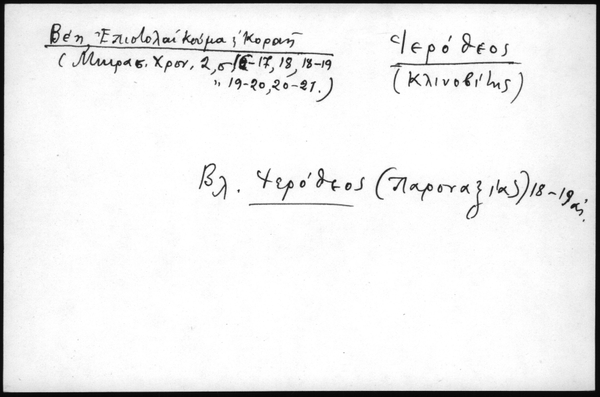 Βέη, Ἐπιστολαί Κούμα ἐ Κοραῆ
(Μικρασ. Χρον. 2, σ. 16-17, 18, 18-19
" 19-20, 20-21.)
Ἱερόθεος
(Κλινοβίτης)
Βλ. Ἱερόθεος (Παροναξίας) 18-19 αἰ.